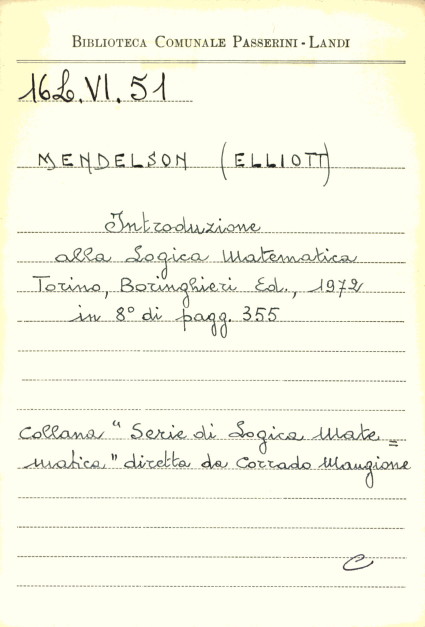 BIBLIOTECA COMUNALE PASSERINI - LANDI
16L.VI.51
MENDELSON (ELLIOTT)
Introduzione
alla Logica Matematica
Torino, Boringhieri Ed., 1972
in 8° di pagg. 355
Collana "Serie di Logica Mate=
matica" diretta da Corrado Mangione
C